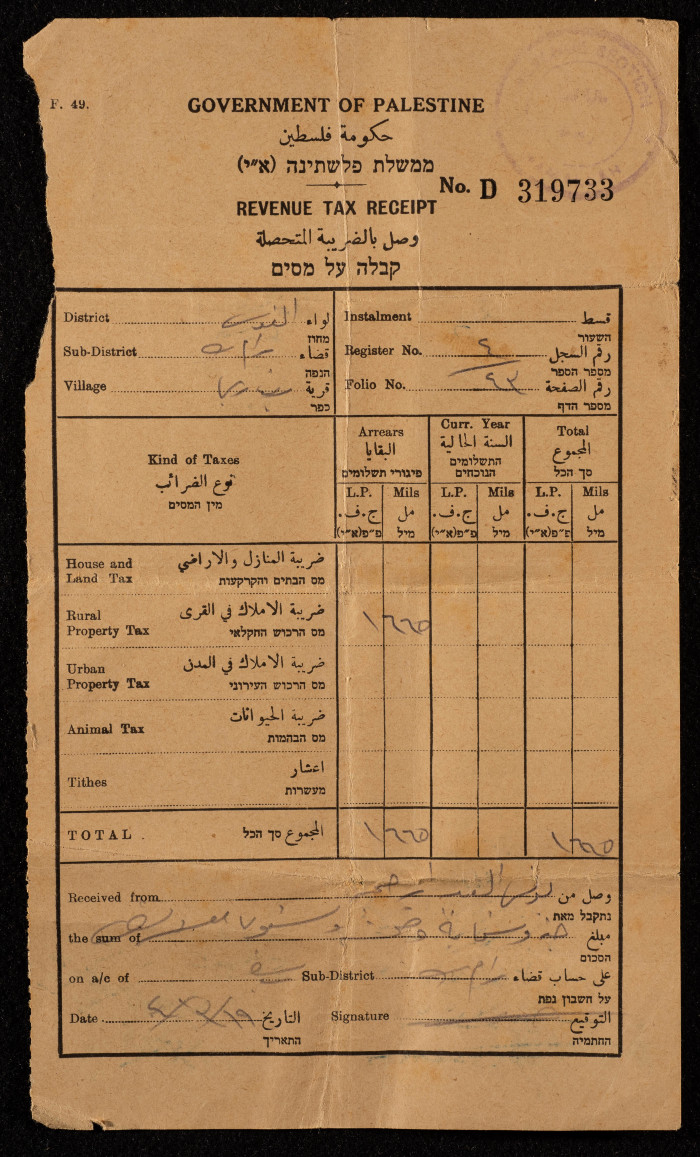 F. 49.
GOVERNMENT OF PALESTINE
حكومة فلسطين
ממשלת פלשתינה (א״י)
No. D 319733
REVENUE TAX RECEIPT
وصل بالضريبة المتحصلة
קבלה על מסים
SECTION
District القدس لواء
מחוז
Sub-District رام الله قضاء
הנפה
Village قرية
כפר
Instalment قسط
השעור
Register No. ٤ رقم السجل
מספר הספר
Folio No. ٤٣ رقم الصفحة
מספר הדף
Kind of Taxes
نوع الضرائب
מין המסים
Arrears
البقايا
פיגורי תשלומים
Curr. Year
السنة الحالية
התשלומים
הנוכחים
Total
المجموع
סך הכל
L.P. Mils L.P. Mils L.P. Mils
ج.ف. مل ج.ف. مل ج.ف. مل
פ״פ(א״י) מיל פ״פ(א״י) מיל פ״פ(א״י) מיל
House and
Land Tax
ضريبة المنازل والاراضي
מס הבתים והקרקעות
Rural
Property Tax
ضريبة الاملاك في القرى
מס הרכוש החקלאי
١ ٦٦٥
Urban
Property Tax
ضريبة الاملاك في المدن
מס הרכוש העירוני
Animal Tax
ضريبة الحيوانات
מס הבהמות
Tithes
اعشار
מעשרות
TOTAL المجموع סך הכל ١ ٦٦٥ ١ ٦٦٥
Received from وصل من
נתקבל מאת
the sum of مبلغ
הסכום
on a/c of Sub-District رام الله على حساب قضاء
על חשבון נפת
Date التاريخ
התאריך
Signature التوقيع
החתמיה